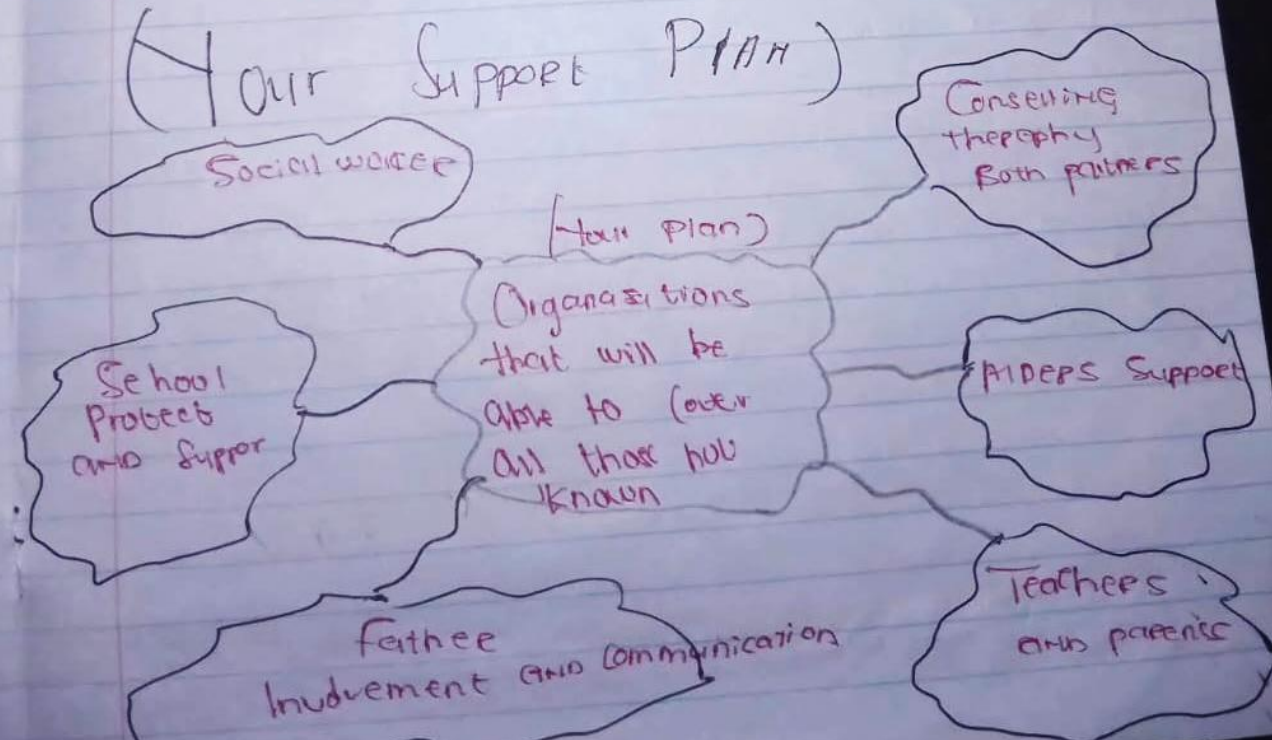 (Your Support Plan)
Social worker
Conselling
therephy
Both patners
(Your plan)
Organasitions
that will be
able to cover
all those
Known
School
Protect
and Suppor
Support
Father
Involvement and Communication
Teachers
and parents